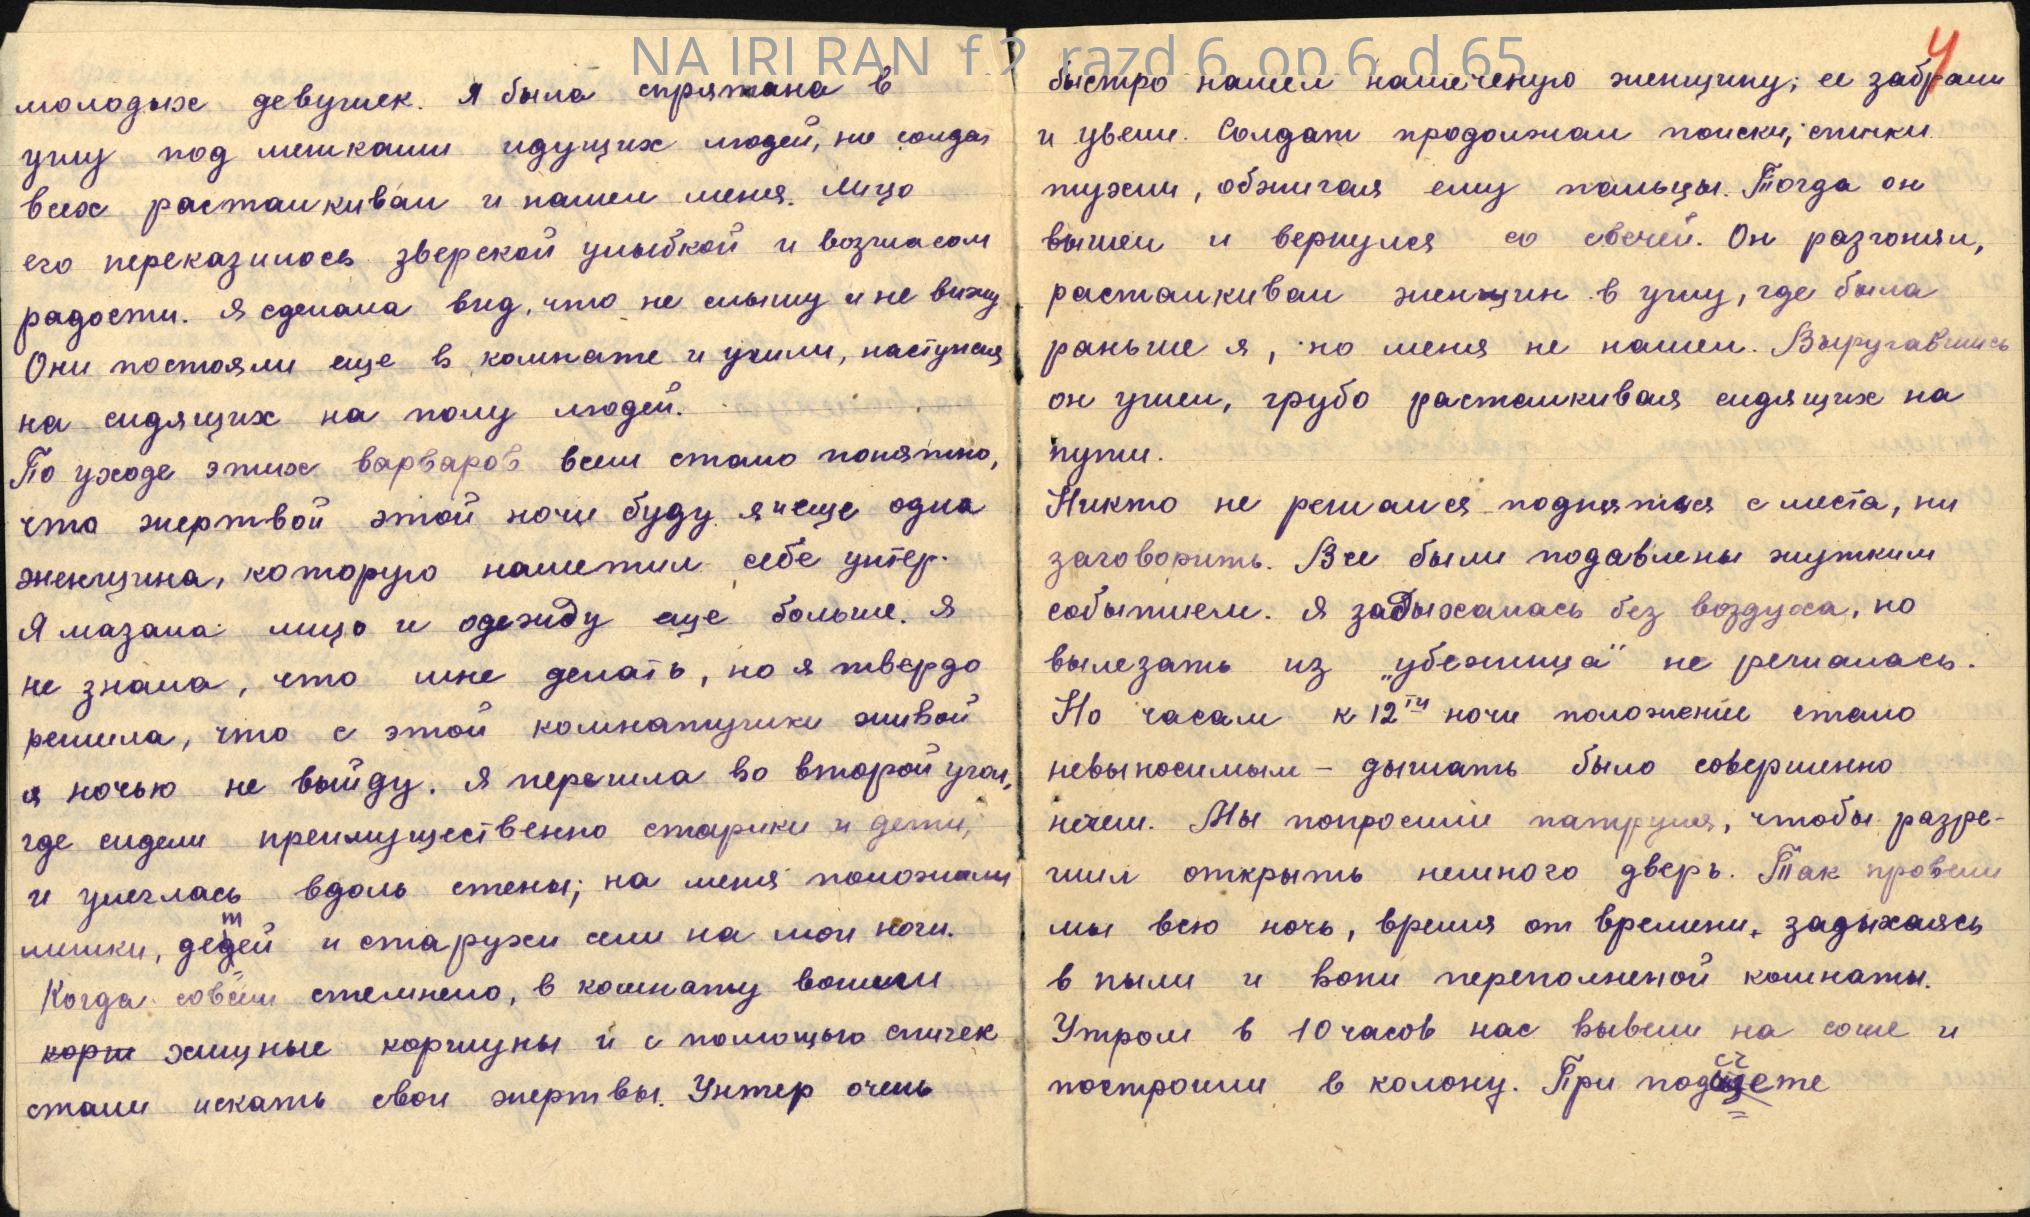 NA IRI RAN f 2 razd 6 op 6 d 65
молодых девушек. Я была спрятана в
углу под мешками идущих людей, но солдат
всех расталкивал и нашел меня. Лицо
его переказилось зверской улыбкой и возгласом
радости. Я сделала вид, что не слышу и не вижу
Они постояли еще в комнате и ушли, наступая
на сидящих на полу людей.
По уходе этих варваров всем стало понятно,
что жертвой этой ночи буду я и еще одна
женщина, которую наметил себе унтер.
Я мазала лицо и одежду еще больше. Я
не знала, что мне делать, но я твердо
решила, что с этой комнатушки живой
я ночью не выйду. Я перешла во второй угол,
где сидели преимущественно старики и дети,
и улеглась вдоль стены; на меня положили
мешки, детей и старухи сели на мои ноги.
Когда совсем стемнело, в комнату вошли
корш хищные коршуны и с помощью спичек
стали искать свои жертвы. Унтер очень
4
быстро нашел намеченую женщину; ее забрали
и увели. Солдат продолжал поиски; спички
тухли, обжигая ему пальцы. Тогда он
вышел и вернулся со свечей. Он разгонял,
расталкивал женщин в углу, где была
раньше я, но меня не нашел. Выругавшись
он ушел, грубо расталкивая сидящих на
пути.
Никто не решался подняться с места, ни
заговорить. Все были подавлены жутким
событием. Я задыхалась без воздуха, но
вылезать из „убежища" не решалась.
Но часам к 12ти ночи положение стало
невыносимым – дышать было совершенно
нечем. Мы попросили патруля, чтобы разре-
шил открыть немного дверь. Так провели
мы всю ночь, время от времени, задыхаясь
в пыли и вони переполненой комнаты.
Утром в 10 часов нас вывели на соше и
построили в колону. При подсчете